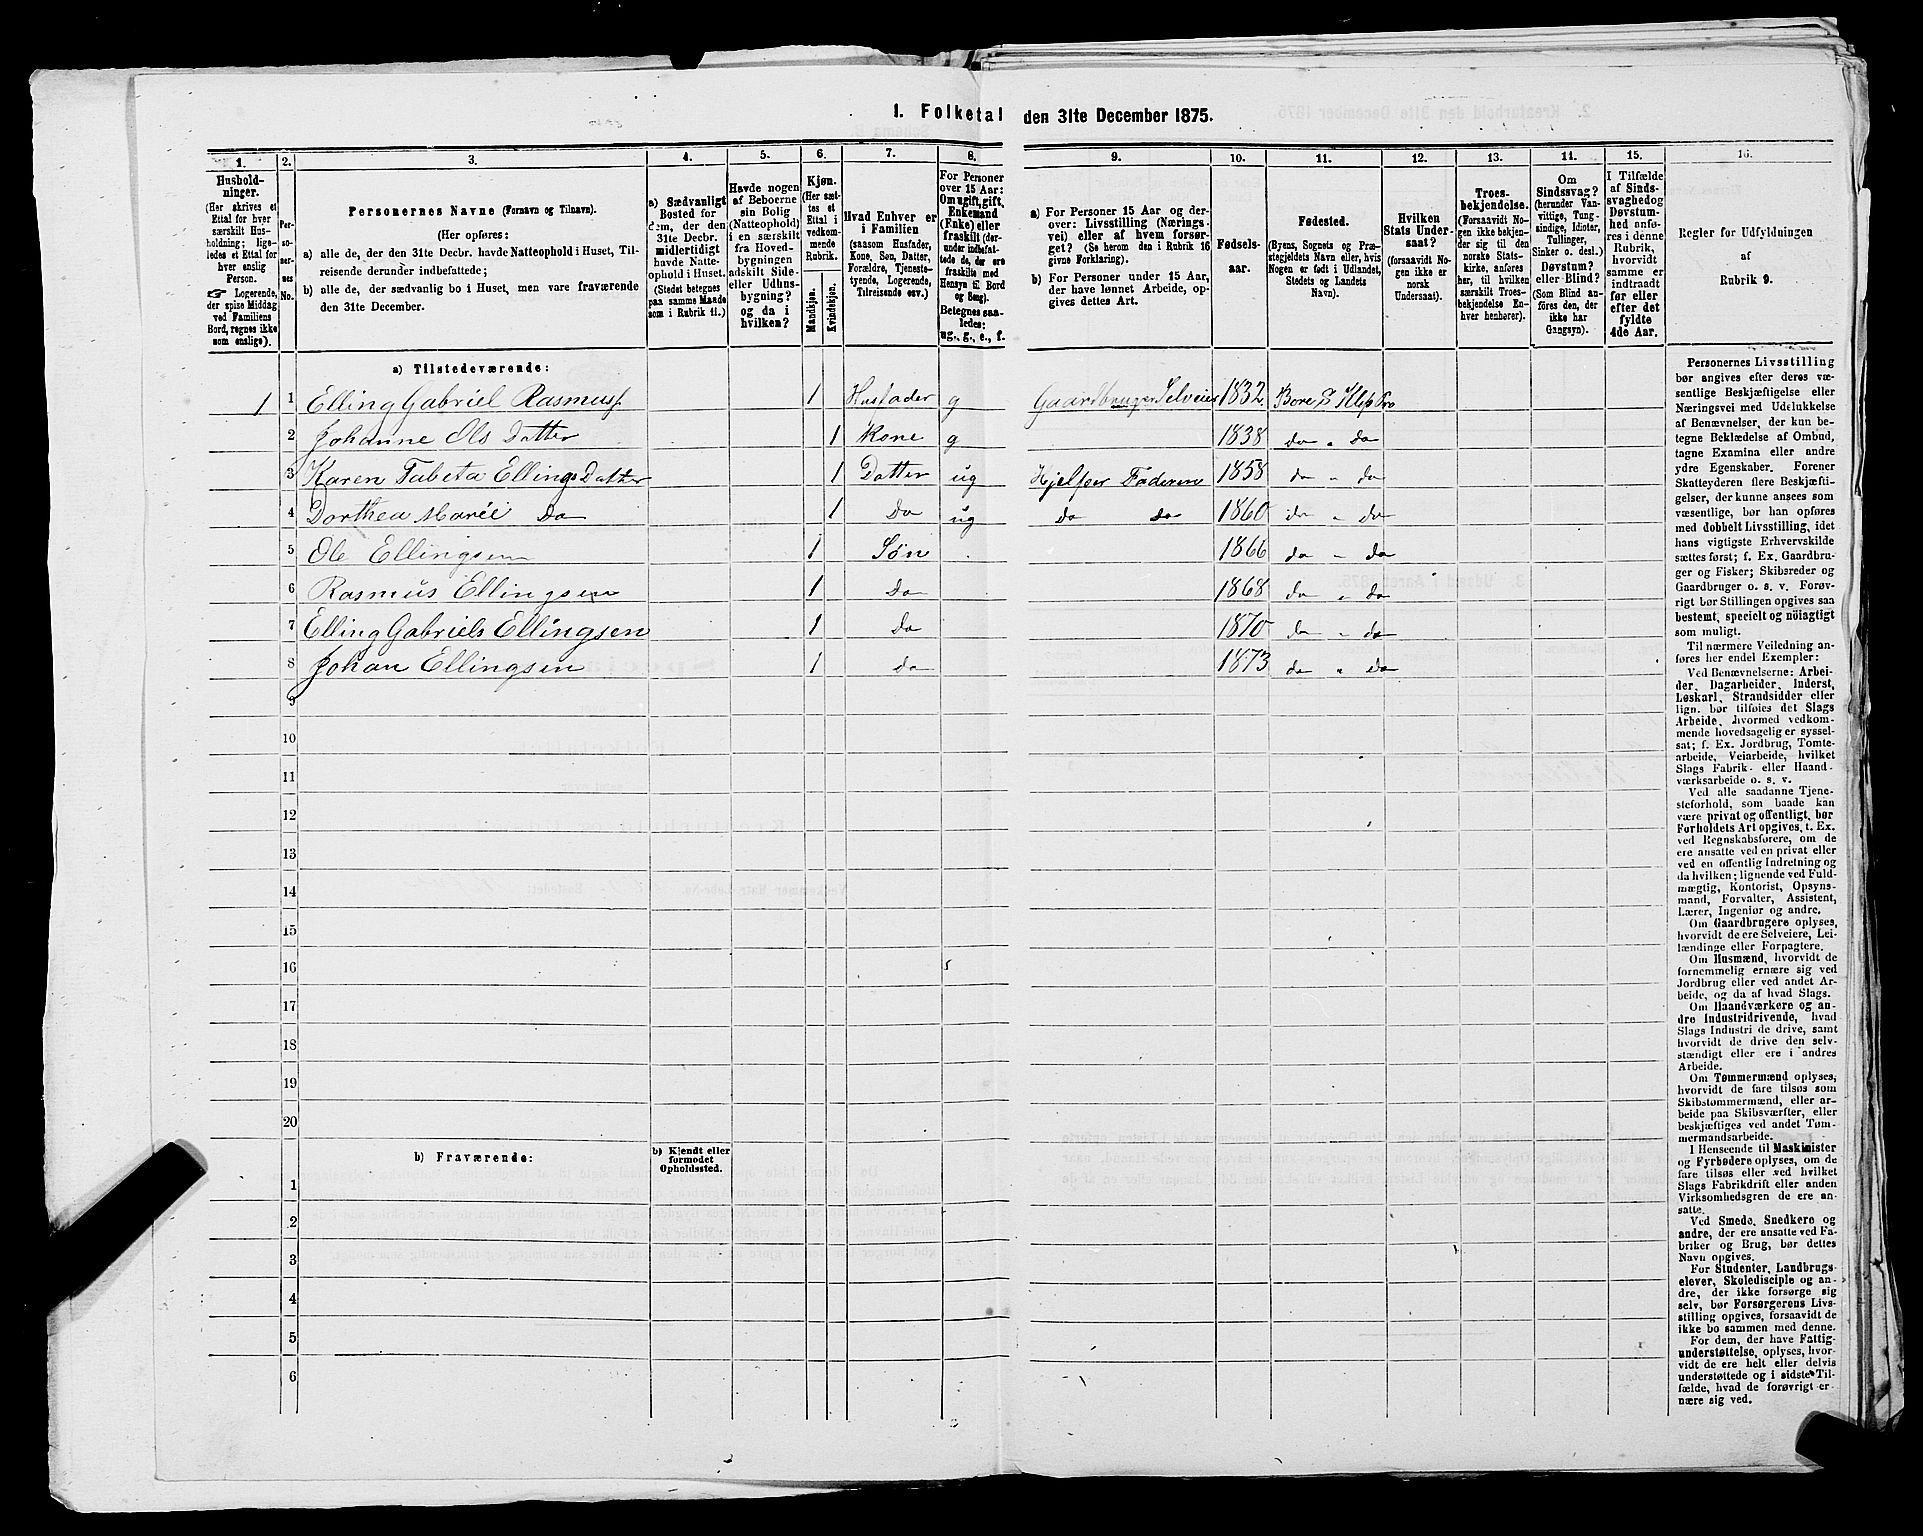 1. Folketal den 31te December 1875.
1.
2.
3.
4.
5.
6.
7.
8.
9.
10.
11.
12.
13.
14.
15.
16.
Hushold-
ninger.
(Her skrives et
Ettal for hver
særskilt Hus-
holdning; lige-
ledes et Ettal for
hver enslig
Person.
☞ Logerende,
der spise Middag
ved Familiens
Bord, regnes ikke
som enslige).
Per-
so-
ner-
nes
No.
Personernes Navne (Fornavn og Tilnavn).
(Her opføres:
a) alle de, der den 31te Decbr. havde Natteophold i Huset, Til-
reisende derunder indbefattede;
b) alle de, der sædvanlig bo i Huset, men vare fraværende
den 31te December.
a) Sædvanligt
Bosted for
dem, der den
31te Decbr.
midlertidigt
havde Natte-
ophold i Huset.
(Stedet betegnes
paa samme Maade
som i Rubrik 11.)
Havde nogen
af Beboerne
sin Bolig
(Natteophold)
i en særskilt
fra Hoved-
bygningen
adskilt Side-
eller Udhus-
bygning?
og da i
hvilken?
Kjøn.
(Her sæt-
tes et
Ettal i
vedkom-
mende
Rubrik.
Mandkjøn.
Kvindekjøn.
Hvad Enhver er
i Familien
(saasom Husfader,
Kone, Søn, Datter,
Forældre, Tjeneste-
tyende, Logerende,
Tilreisende osv.)
For Personer
over 15 Aar:
Om ugift, gift,
Enkemand
(Enke) eller
fraskilt (der-
under indbefat-
tede de, der ere
fraskilte med
Hensyn til Bord
og Seng).
Betegnes saa-
ledes:
ug., g., e., f.
a) For Personer 15 Aar og der-
over: Livsstilling (Nærings-
vei) eller af hvem forsør-
get? (Se herom den i Rubrik 16
givne Forklaring).
b) For Personer under 15 Aar,
der have lønnet Arbeide, op-
gives dettes Art.
Fødsels-
aar.
Fødested.
(Byens, Sognets og Præ-
stegjeldets Navn eller, hvis
Nogen er født i Udlandet,
Stedets og Landets
Navn).
Hvilken
Stats Under-
saat?
(forsaavidt No-
gen ikke er
norsk
Undersaat).
Troes-
bekjendelse.
(Forsaavidt No-
gen ikke bekjen-
der sig til den
norske Stats-
kirke, anføres
her, til hvilken
særskilt Troes-
bekjendelse En-
hver henhører).
Om
Sindssvag?
(herunder Van-
vittige, Tung-
sindige, Idioter,
Tullinger,
Sinker o. desl.)
Døvstum?
eller Blind?
(Som Blind an-
føres den, der
ikke har
Gangsyn).
I Tilfælde
af Sinds-
svaghed og
Døvstum-
hed anfø-
res i denne
Rubrik,
hvorvidt
samme er
indtraadt
før eller
efter det
fyldte
4de Aar.
Regler for Udfyldningen
af
Rubrik 9.
a) Tilstedeværende:
1 1 Elling Gabriel Rasmuss. 1 Husfader g Gaardbruger Selveier 1832 Bore S Klep Pr
2 Johanne Ols Datter 1 Kone g 1838 do " do
3 Karen Tabeta Ellings Datter 1 Datter ug Hjelper Faderen 1858 do " do
4 Dorthea Marie Do 1 Do ug do do 1860 do " do
5 Ole Ellingsen 1 Søn 1866 do " do
6 Rasmus Ellingsen 1 Do 1868 do " do
7 Elling Gabriels Ellingsen 1 do 1870 do " do
8 Johan Ellingsen 1 do 1873 do " do
9
10
11
12
13
14
15
16
17
18
19
20
b) Fraværende:
b) Kjendt eller
formodet
Opholdssted.
1
2
3
4
5
6
Personernes Livsstilling
bør angives efter deres væ-
sentlige Beskjæftigelse eller
Næringsvei med Udelukkelse
af Benævnelser, der kun be-
tegne Beklædelse af Ombud,
tagne Examina eller andre
ydre Egenskaber. Forener
Skatteyderen flere Beskjæfti-
gelser, der kunne ansees som
væsentlige, bør han opføres
med dobbelt Livsstilling, idet
hans vigtigste Erhvervskilde
sættes først; f. Ex. Gaardbru-
ger og Fisker; Skibsreder og
Gaardbruger o. s. v. Forøv-
rigt bør Stillingen opgives saa
bestemt, specielt og nöiagtigt
som muligt.
Til nærmere Veiledning an-
føres her endel Exempler:
Ved Benævnelserne: Arbei-
der, Dagarbeider, Inderst,
Løskarl, Strandsidder eller
lign. bør tilføies det Slags
Arbeide, hvormed vedkom-
mende hovedsagelig er syssel-
sat; f. Ex. Jordbrug, Tomte-
arbeide, Veiarbeide, hvilket
Slags Fabrik- eller Haand-
værksarbeide o. s. v.
Ved alle saadanne Tjene-
steforhold, som baade kan
være privat og offentligt, bør
Forholdets Art opgives, t. Ex.
ved Regnskabsførere, om de
ere ansatte ved en privat eller
ved en offentlig Indretning og
da hvilken; lignende ved Fuld-
mægtig, Kontorist, Opsyns-
mand, Forvalter, Assistent,
Lærer, Ingeniør og andre.
Om Gaardbrugere oplyses,
hvorvidt de ere Selveiere, Lei-
lændinge eller Forpagtere.
Om Husmænd, hvorvidt de
fornemmelig ernære sig ved
Jordbrug eller ved andet Ar-
beide, og da af hvad Slags.
Om Haandværkere og an-
dre Industridrivende, hvad
Slags Industri de drive, samt
hvorvidt de drive den selv-
stændigt eller ere i andres
Arbeide.
Om Tømmermænd oplyses,
hvorvidt de fare tilsøs som
Skibstømmermænd, eller ar-
beide paa Skibsværfter, eller
beskjæftiges ved andet Tøm-
mermandsarbeide.
I Henseende til Maskinister
og Fyrbødere oplyses, om de
fare tilsøs eller ved hvilket
Slags Fabrikdrift eller anden
Virksomhedsgren de ere an-
satte.
Ved Smede, Snedkere og
andre, der ere ansatte ved Fa-
briker og Brug, bør dettes
Navn opgives.
For Studenter, Landbrugs-
elever, Skoledisciple og an-
dre, der ikke forsørge sig
selv, bør Forsørgerens Livs-
stilling opgives, forsaavidt de
ikke bo sammen med denne.
For dem, der have Fattig-
understøttelse, oplyses, hvor-
vidt de ere helt eller delvis
understøttede og i sidste Til-
fælde, hvad de forøvrigt er-
nære sig ved.